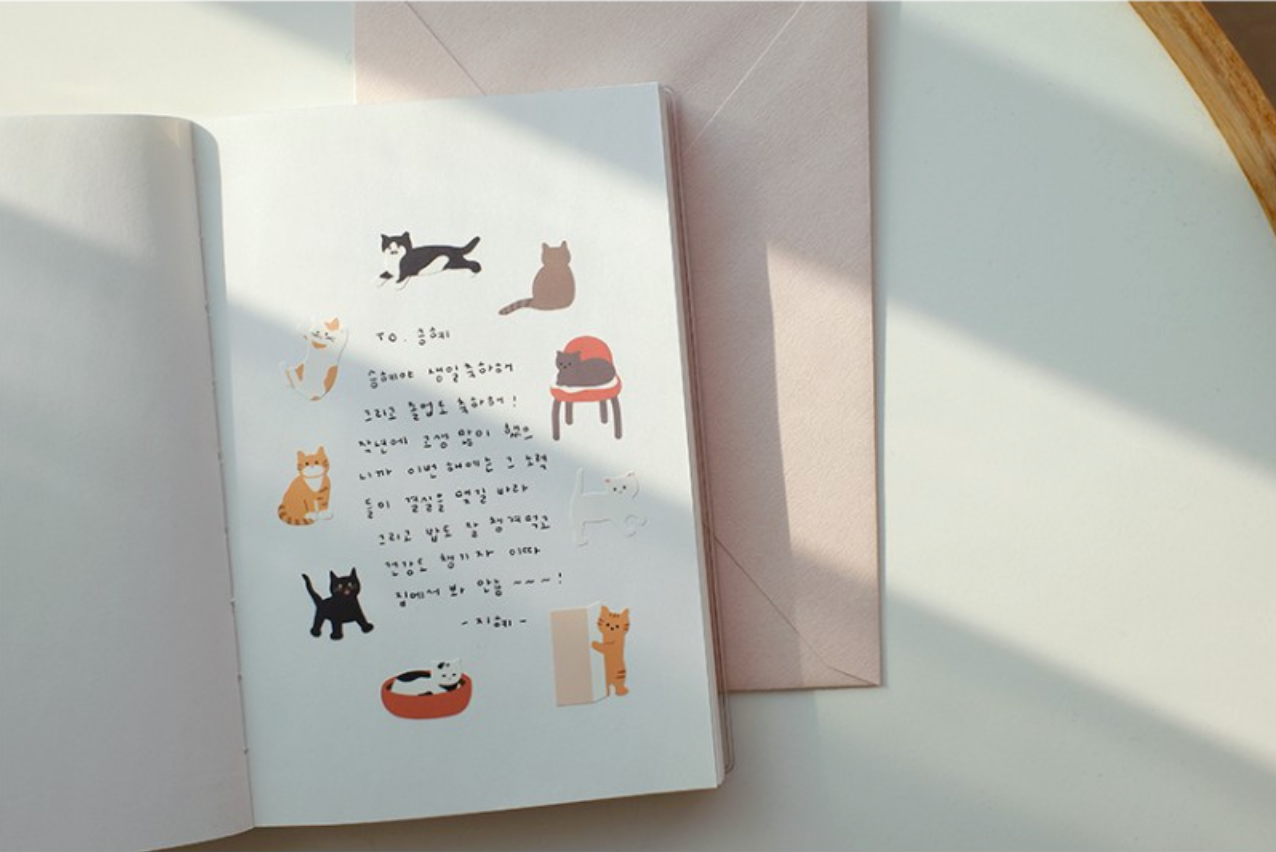 TO. 승혜
승혜야 생일축하해
그리고 졸업도 축하해!
작년에 고생 많이 했으
니까 이번 해에는 그 노력
들이 결실을 맺길 바라
그리고 밥도 잘 챙겨먹고
건강도 챙기자 이따
집에서 봐 안녕 ~~~!
- 지혜 -